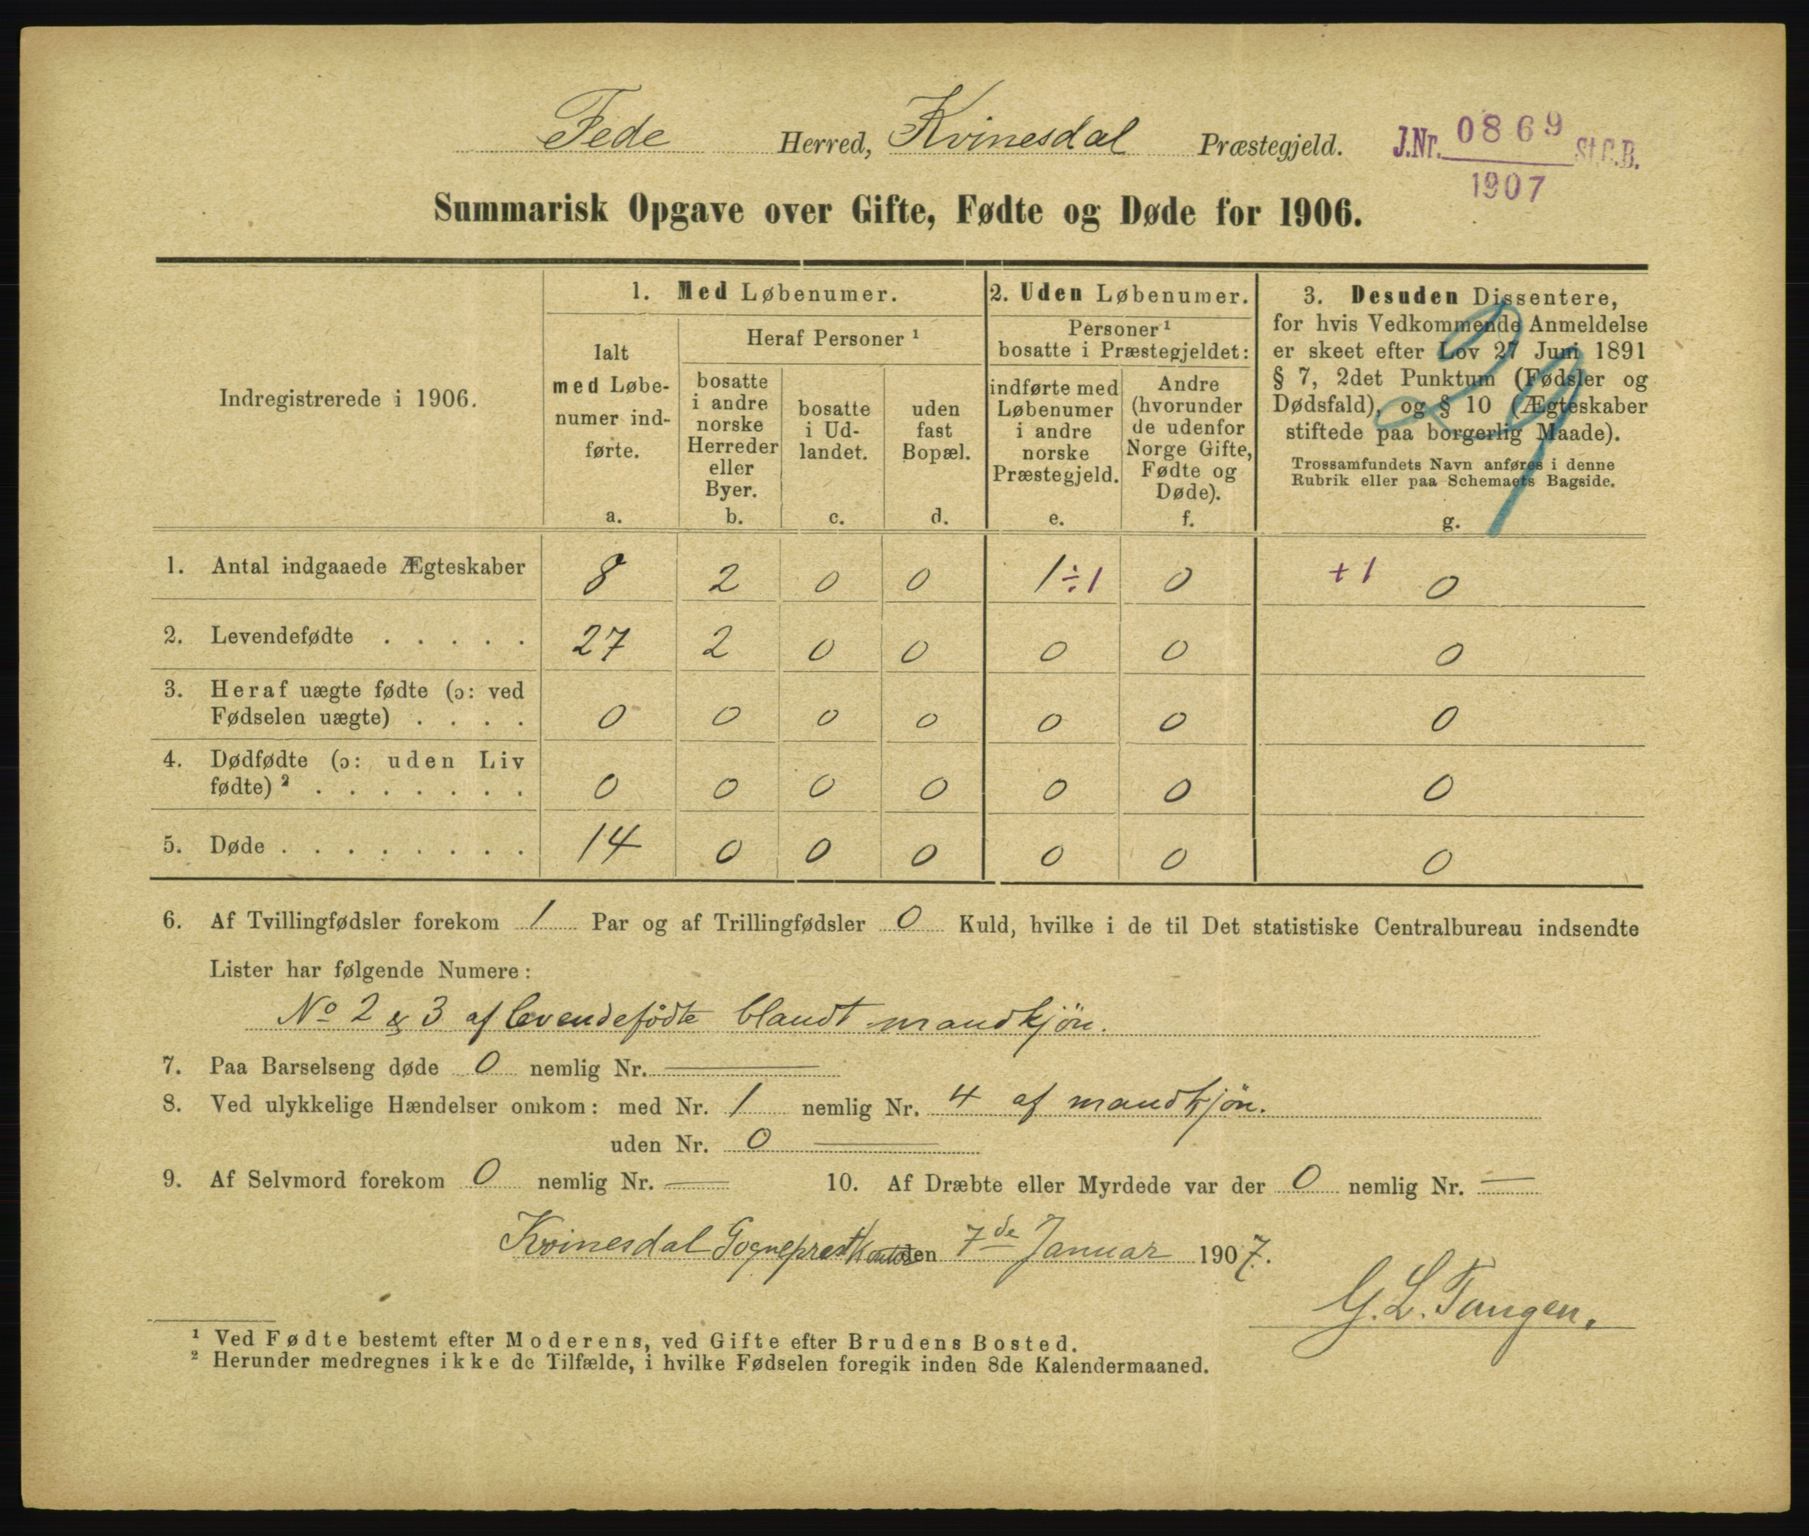 Fede Herred, Kvinesdal Præstegjeld.
J.Nr. 0869 St.C.B.
1907
Summarisk Opgave over Gifte, Fødte og Døde for 1906.
Indregistrerede i 1906.
1. Med Løbenumer.
Ialt
med Løbe-
numer ind-
førte.
a.
Heraf Personer ¹
bosatte
i andre
norske
Herreder
eller
Byer.
b.
bosatte
i Ud-
landet.
c.
uden
fast
Bopæl.
d.
2. Uden Løbenumer.
Personer ¹
bosatte i Præstegjeldet:
indførte med
Løbenumer
i andre
norske
Præstegjeld.
e.
Andre
(hvorunder
de udenfor
Norge Gifte,
Fødte og
Døde).
f.
3. Desuden Dissentere,
for hvis Vedkommende Anmeldelse
er skeet efter Lov 27 Juni 1891
§ 7, 2det Punktum (Fødsler og
Dødsfald), og § 10 (Ægteskaber
stiftede paa borgerlig Maade).
Trossamfundets Navn anføres i denne
Rubrik eller paa Schemaets Bagside.
g.
29
1. Antal indgaaede Ægteskaber 8 2 0 0 1 ÷1 0 +1 0
2. Levendefødte . . . . . 27 2 0 0 0 0 0
3. Heraf uægte fødte (ɔ: ved
Fødselen uægte) . . . . 0 0 0 0 0 0 0
4. Dødfødte (ɔ: uden Liv
fødte) ² . . . . . . . 0 0 0 0 0 0 0
5. Døde . . . . . . . . 14 0 0 0 0 0 0
6. Af Tvillingfødsler forekom 1 Par og af Trillingfødsler 0 Kuld, hvilke i de til Det statistiske Centralbureau indsendte
Lister har følgende Numere:
No 2 & 3 af levendefödte blandt mandkjön.
7. Paa Barselseng døde 0 nemlig Nr. —
8. Ved ulykkelige Hændelser omkom: med Nr. 1 nemlig Nr. 4 af mandkjön.
uden Nr. 0 —
9. Af Selvmord forekom 0 nemlig Nr. — 10. Af Dræbte eller Myrdede var der 0 nemlig Nr. —
Kvinesdal Sogneprestkontor den 7de Januar 1907.
G. L. Tangen.
¹ Ved Fødte bestemt efter Moderens, ved Gifte efter Brudens Bosted.
² Herunder medregnes ikke de Tilfælde, i hvilke Fødselen foregik inden 8de Kalendermaaned.